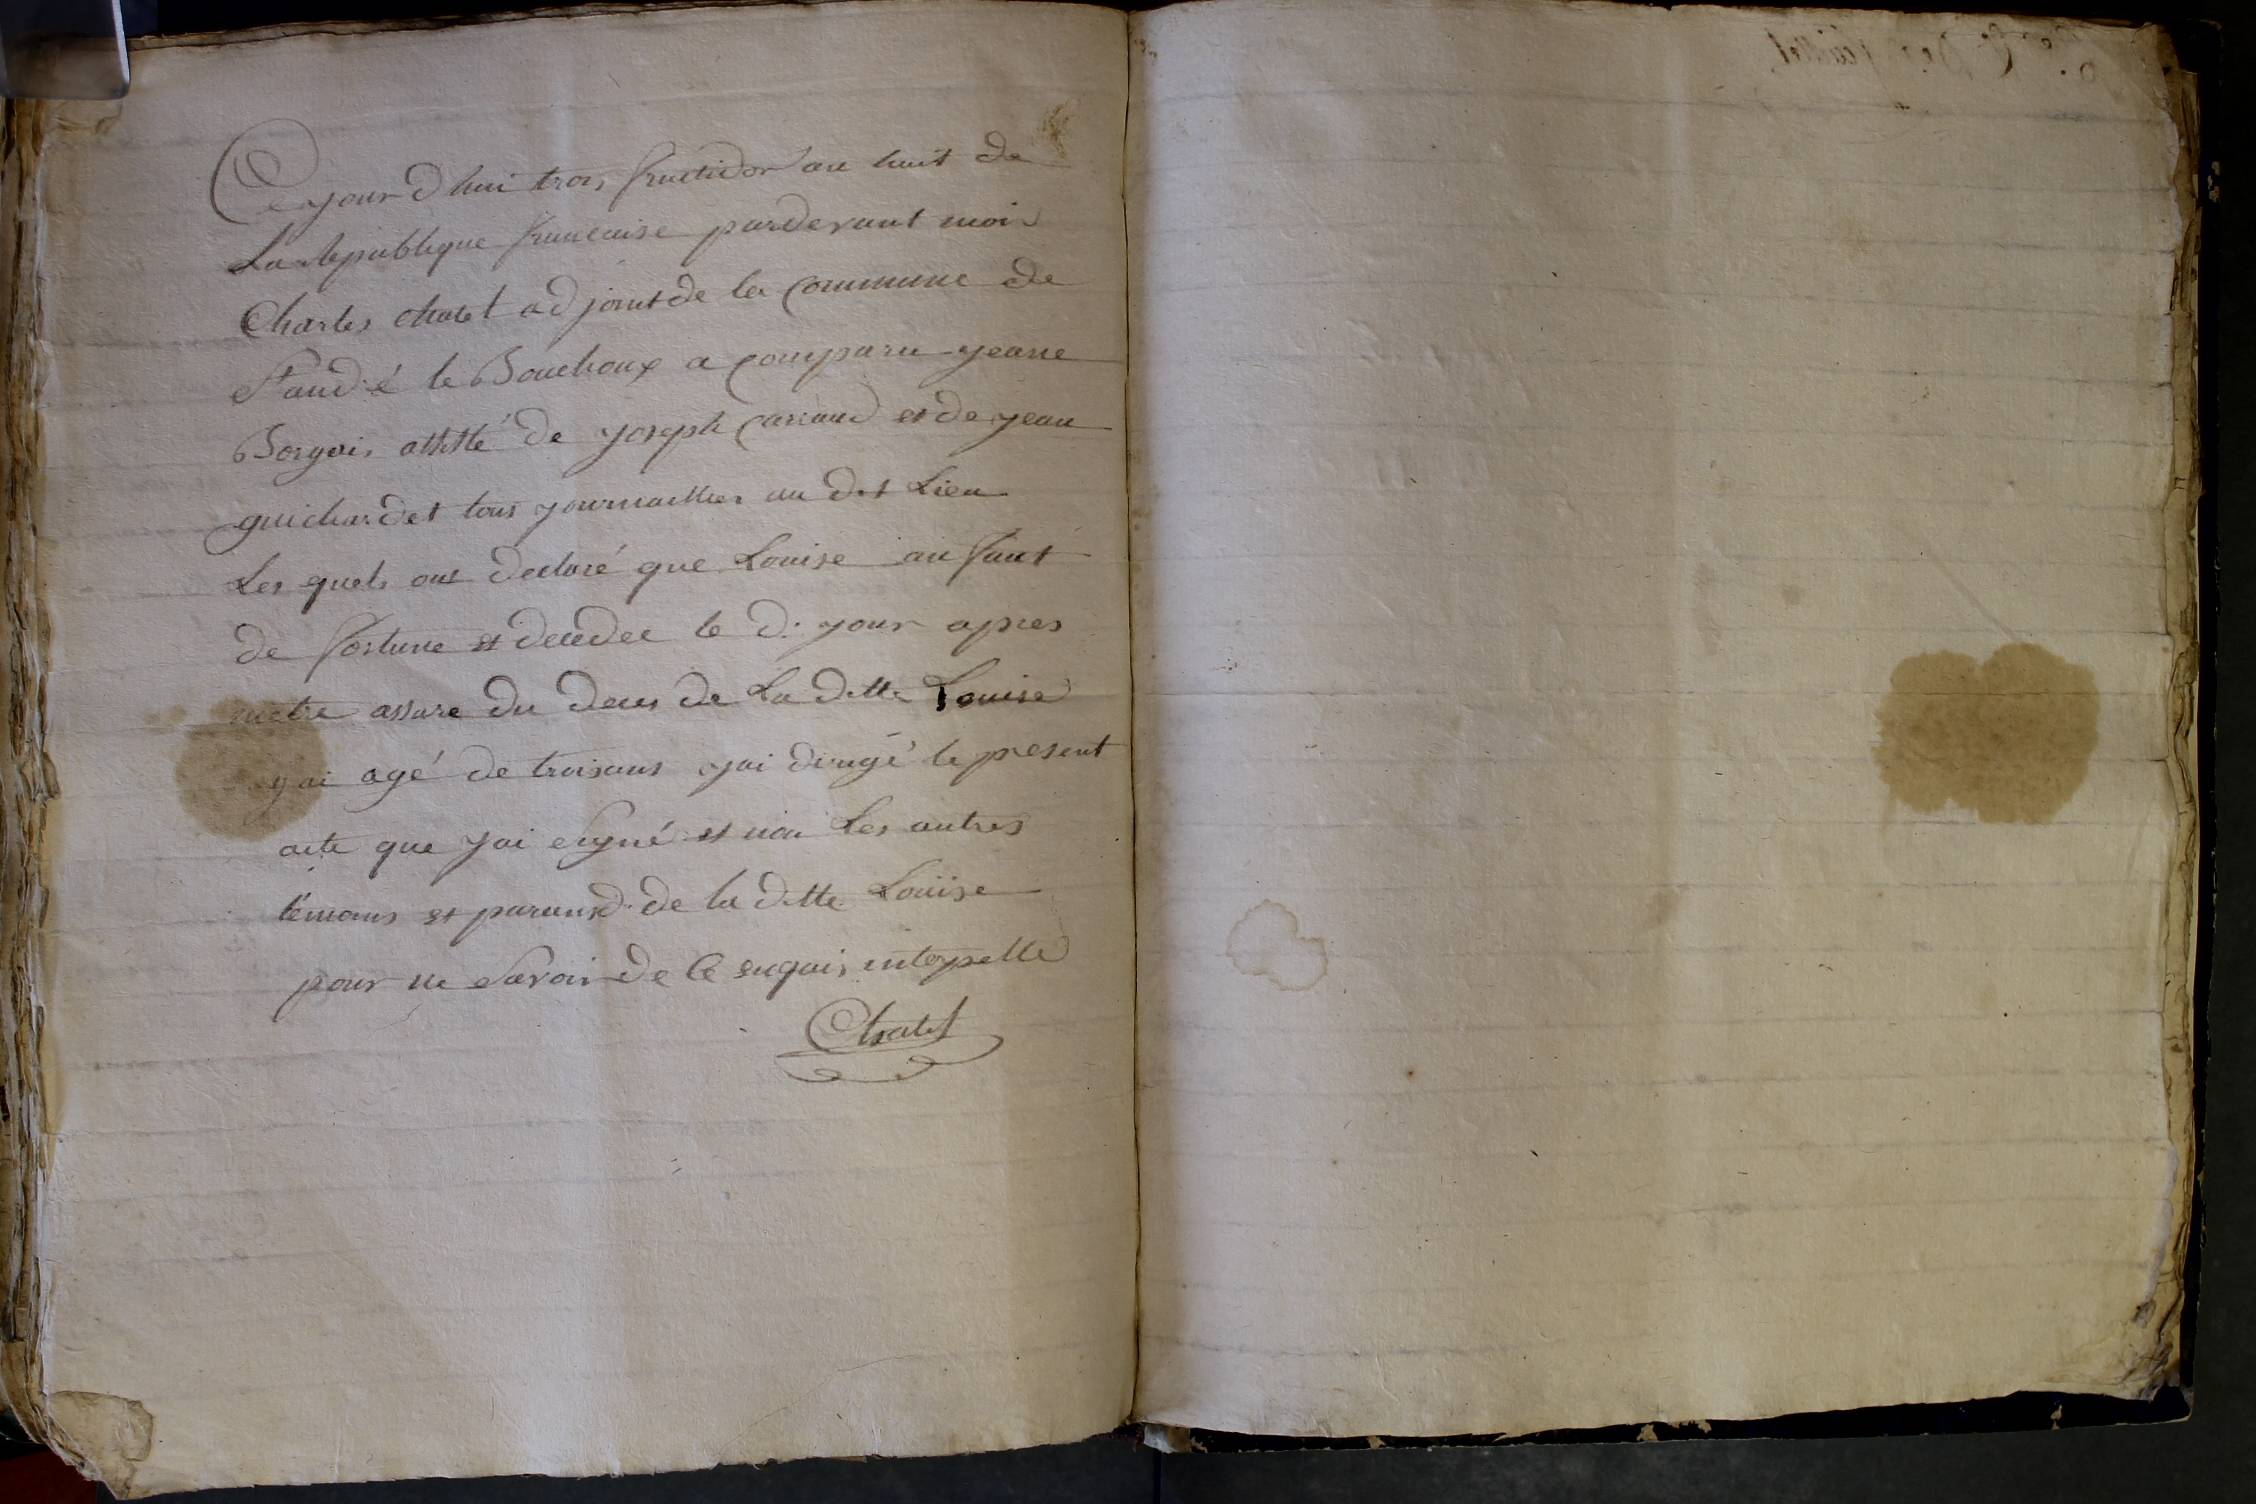 Ce jourd hui trois fructidor an huit de
La republique francaise pardevant moi
Charles chatel adjoint de la commune de
le Bouchoux a comparu jeane
Borgeis assisté de joseph et de jean
guichardet tous journaillier au dit Lieu
Les quels ont declaré que Louise anfant
de fortune et decedee le d. jour apres
metre assure du deces de La ditte Louise
agé de troisans jai dirigé le present
acte que jai signé et non Les autres
temoins et parans de la ditte Louise
pour ne savoir de ce enquis interpelle
Chatel